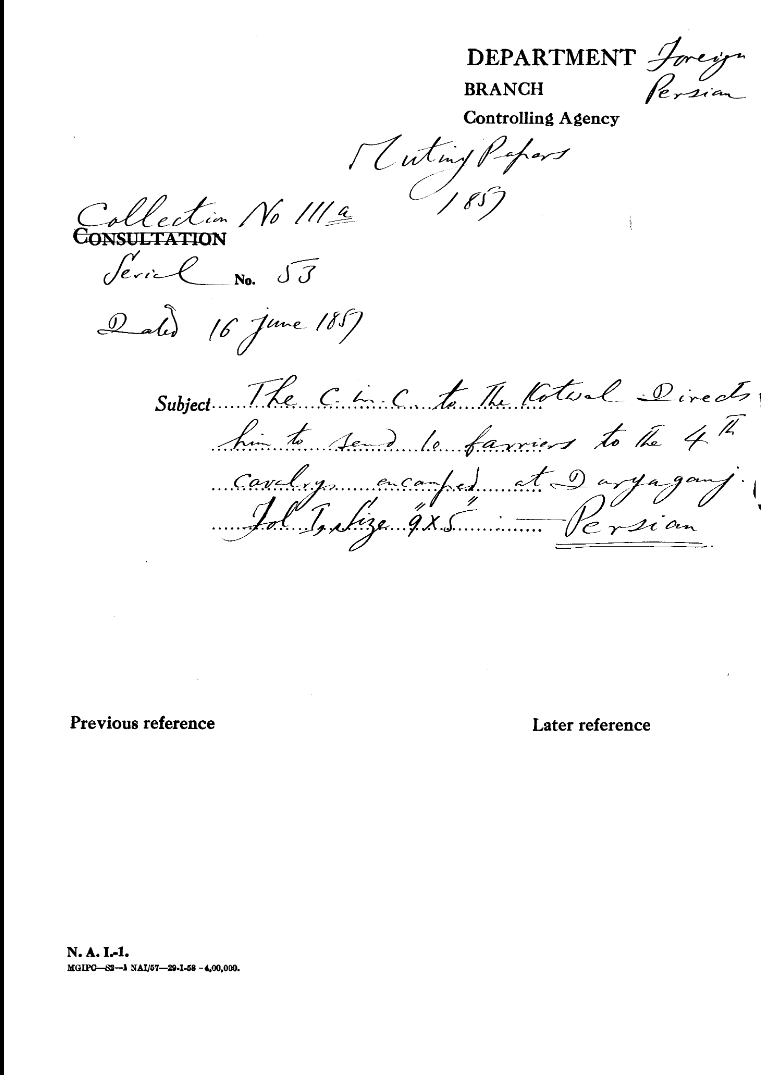 DEPARTMENT Foreign
BRANCH Persian
Controlling Agency
Mutiny Papers
1857
Collection No III a
CONSULTATION
Serial No. 53
Dated 16 June 1857
Subject The C. in. C. to the Kotwal Directs
him to send 10 farriers to the 4TH
cavalry encamped at Daryaganj.
Fol I, Size 9"x5" — Persian
Previous reference
Later reference
N. A. I.-1.
MGIPC—S2—1 NAI/57—29-1-58 -4,00,000.